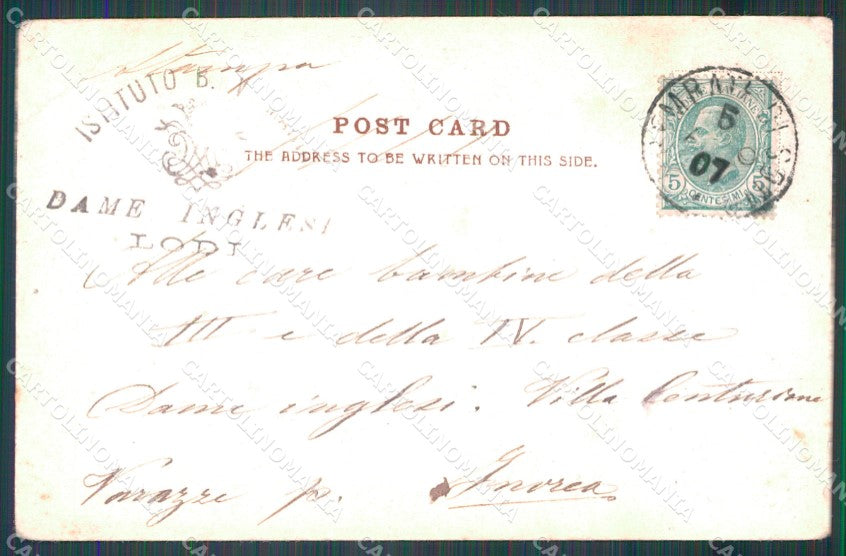 Stampa
ISTITUTO B. V.
POST CARD
THE ADDRESS TO BE WRITTEN ON THIS SIDE.
5
07
5 CENTESIMI 5
DAME INGLESI
LODI
Alle care bambine della
III e della IV. classe
Dame inglesi. Villa Centurione
Varazze p. Invrea
CARTOLINOMANIA